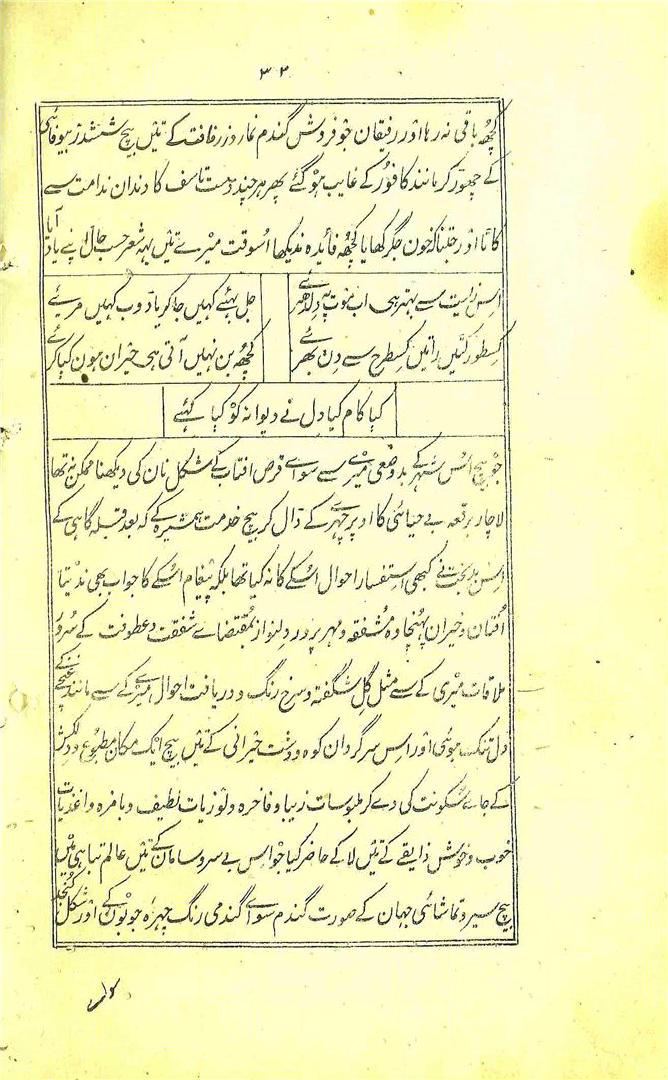 ۳۲
کچھ باقی نہ رہا اور رفیقان جو فروش گندم نما روز رفاقت کے تئیں بیچ ششدر بیوفائی
کے چھوڑ کر مانند کافور کے غایب ہو گئے پھر ہر چند دست تاسف کا دندان ندامت سے
کاٹا اور جتنا کہ خون جگر کھایا کچھ فائدہ ندیکھا اسوقت میرے تئیں یہہ شعر حسب حال اپنے یاد آیا
اس زیست سے بہتر ہی اب موت پہ دل دھرئے
جل بھئے کہیں جا کر یا ڈوب کہیں مرئے
کسطور کٹیں راتیں کسطرح سے دن بھرئے
کچھ بن نہیں آتی ہی حیران ہون کیا کرئے
کیا کام کیا دل نے دیوانہ کو کیا کہئے
جو بیچ اس شہر کے بد وضعی میرے سے سواے قرص افتاب کے شکل نان کی دیکھنا ممکن نہ تھا
لاچار برقعہ بے حیائی کا اوپر چہرے کے ڈال کر بیچ خدمت ہمشیرہ کے کہ بعد قبلہ گاہی کے
اس بدبخت نے کبھی استفسار احوال اسکے کا نہ کیا تھا بلکہ پیغام اسکے کا جواب بھی ندیتا
افتان و خیران پہنچا وہ مشفقہ و مہر پرور دلنواز بمقتضاے شفقت و عطوفت کے سرور
ملاقات میری کے سے مثل گل شگفتہ و سرخ رنگ و دریافت احوال میرے کے سے مانند غنچے کے
دل تنگ ہوئی اور اس سرگردان کوہ و دشت حیرانی کے تئیں بیچ ایک مکان مطبوع و دلکش
کے جاے سکونت کی دے کر ملبوسات زیبا و فاخرہ و لوزیات لطیف و بامزہ و اغذیات
خوب و خوش ذایقے کے تئیں لا کے حاضر کیا جو اس بے سرو سامان کے تئیں عالم تباہی میں
بیچ سیر و تماشائی جہان کے صورت گندم سواے گندمی رنگ چہرہ خوبون کے اور شکل کنجد